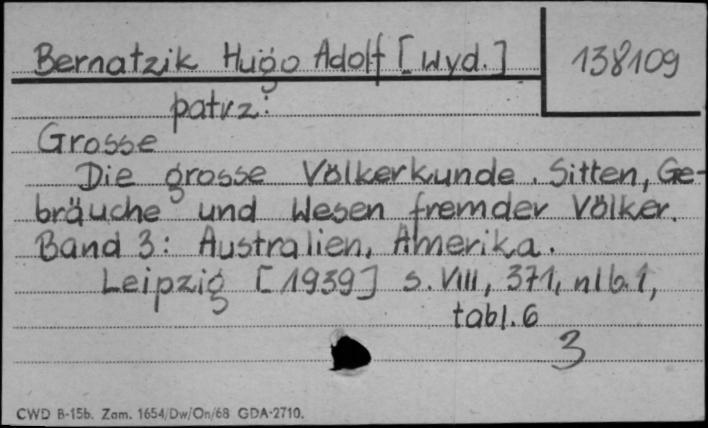 Bernatzik Hugo Adolf [Wyd.]
138109
patrz:
Grosse
Die grosse Völkerkunde. Sitten, Ge-
bräuche und Wesen fremder Völker.
Band 3: Australien, Amerika.
Leipzig [1939] s. VIII, 371, nlb. 1,
tabl. 6
3
CWD B-15b. Zam. 1654/Dw/On/68 GDA-2710.